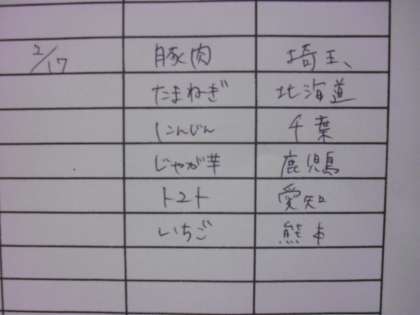 2/17 豚肉 埼玉、
たまねぎ 北海道
にんじん 千葉
じゃが芋 鹿児島
トマト 愛知
いちご 熊本